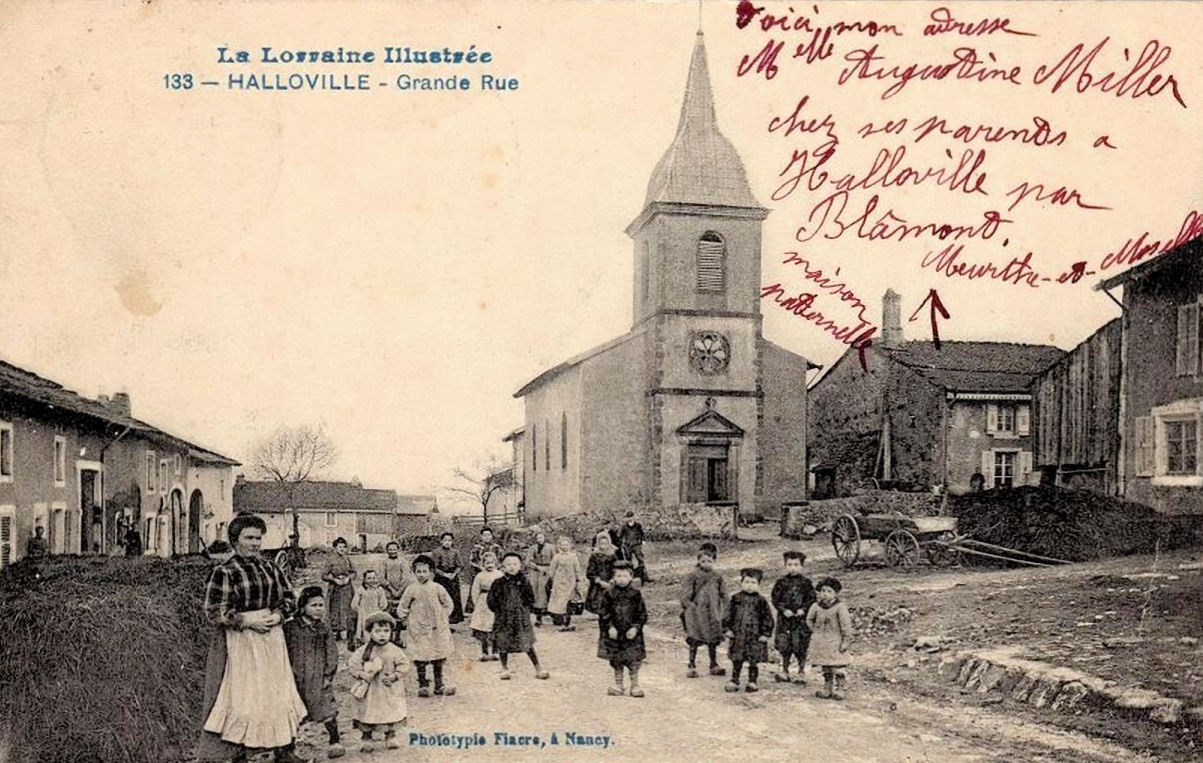 La Lorraine Illustrée
133 — HALLOVILLE - Grande Rue
Voici mon adresse
Melle Augustine Miller
chez ses parents a
Halloville par
Blâmont
Meurthe-et-Moselle
maison
paternelle
Phototypie Fiacre, à Nancy.